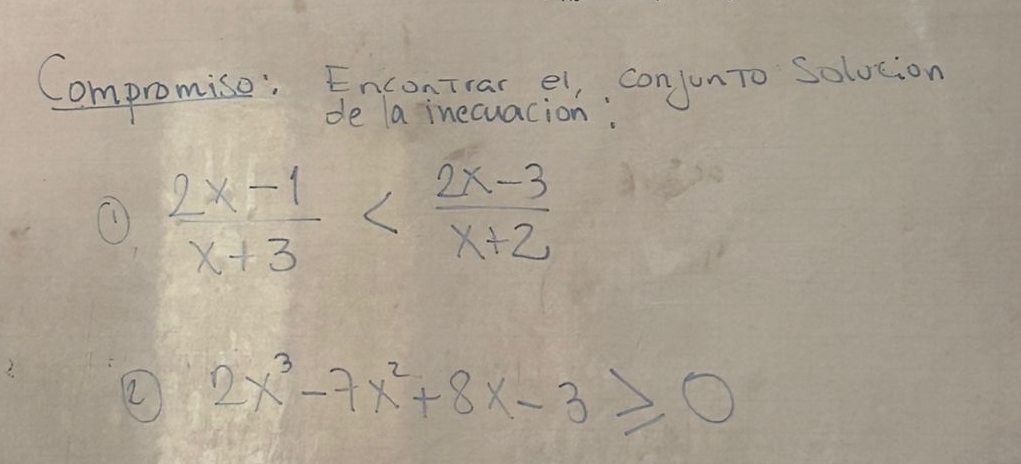 Compromiso: Encontrar el, conjunto Solucion
de la inecuacion:
① (2x-1)/(x+3) < (2x-3)/(x+2)
② 2x³-7x²+8x-3 ≥ 0